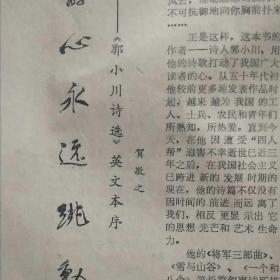 的心永远跳动
——《郭小川诗选》英文本序
贺敬之
不可抗御地向你胸前扑来
……
正是这样,这本书的
作者——诗人郭小川,用
他的诗歌打动了我国广大
读者的心。从五十年代初
他较前更多地发表作品时
起,越来越为我国的工
人、士兵、农民和青年们
所熟知,所热爱,直到今
天,在他因遭受“四人
帮”迫害不幸逝世已近三
年之后,在我国社会主义
已跨进新的发展时期的
现在,他的诗篇不仅没有
因时间的前进而远离了我
们,相反更显示出它
的思想光芒和艺术生命
力。
他的《将军三部曲》、
《雪与山谷》、《一个和